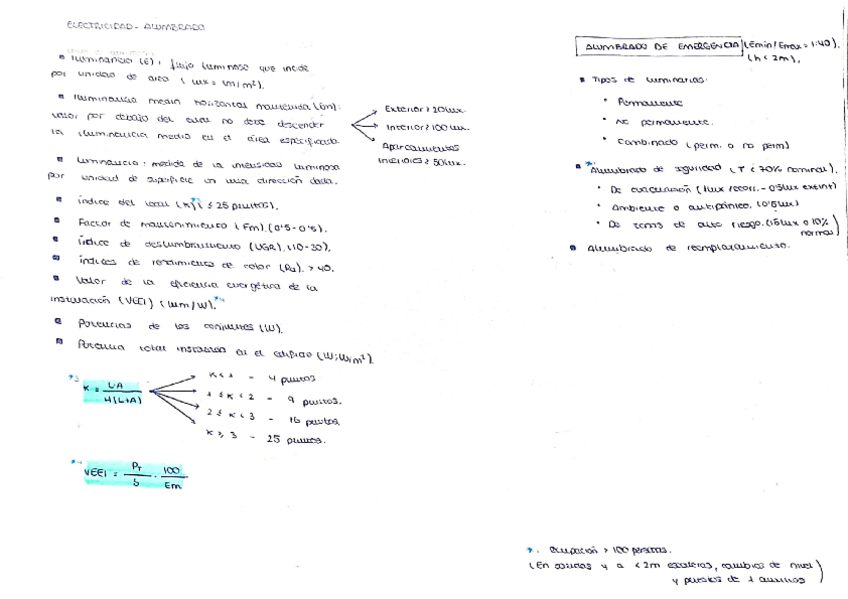 ELECTRICIDAD - ALUMBRADO
Iluminancia (E): flujo luminoso que incide
por unidad de area ( lux = lm/m²).
Iluminancia media horizontal mantenida (Em):
valor por debajo del cual no debe descender
la iluminancia media en el área especificada.
Exterior > 20 lux.
Interior > 100 lux.
Aparcamientos
Interiores > 50 lux.
Luminancia: medida de la intensidad luminosa
por unidad de superficie en una dirección dada.
Índice del local (K) ≤ 25 puntos).
Factor de mantenimiento (Fm).
Índice de deslumbramiento (UGR). (10-30).
Índices de rendimiento de color (Ra). > 40.
Valor de la eficiencia energética de la
instalación (VEEI) (
Potencias de los conjuntos (W).
Potencia total instalada en el edificio (W; W/m²).
K = L·A / H(L+A)
K < 1 - 4 puntos
1 ≤ K < 2 - 9 puntos.
2 ≤ K < 3 - 16 puntos.
K ≥ 3 - 25 puntos.
VEEI = PT / S · 100 / Em
ALUMBRADO DE EMERGENCIA (Emin/Emax = 1:40).
(h < 2m).
Tipos de luminarias:
Permanente
No permanente.
Combinado (perm. o no perm)
Alumbrado de seguridad ( T < 70% nominal).
De evacuación (1 lux recorr. - 0'5 lux extint)
Ambiente o antipánico. (0'5 lux)
De zonas de alto riesgo. (15 lux o 10%
normal)
Alumbrado de reemplazamiento.
*. Ocupación > 100 personas.
(En salidas y a < 2m escaleras, cambios de nivel
y puestos de 1 auxilios)